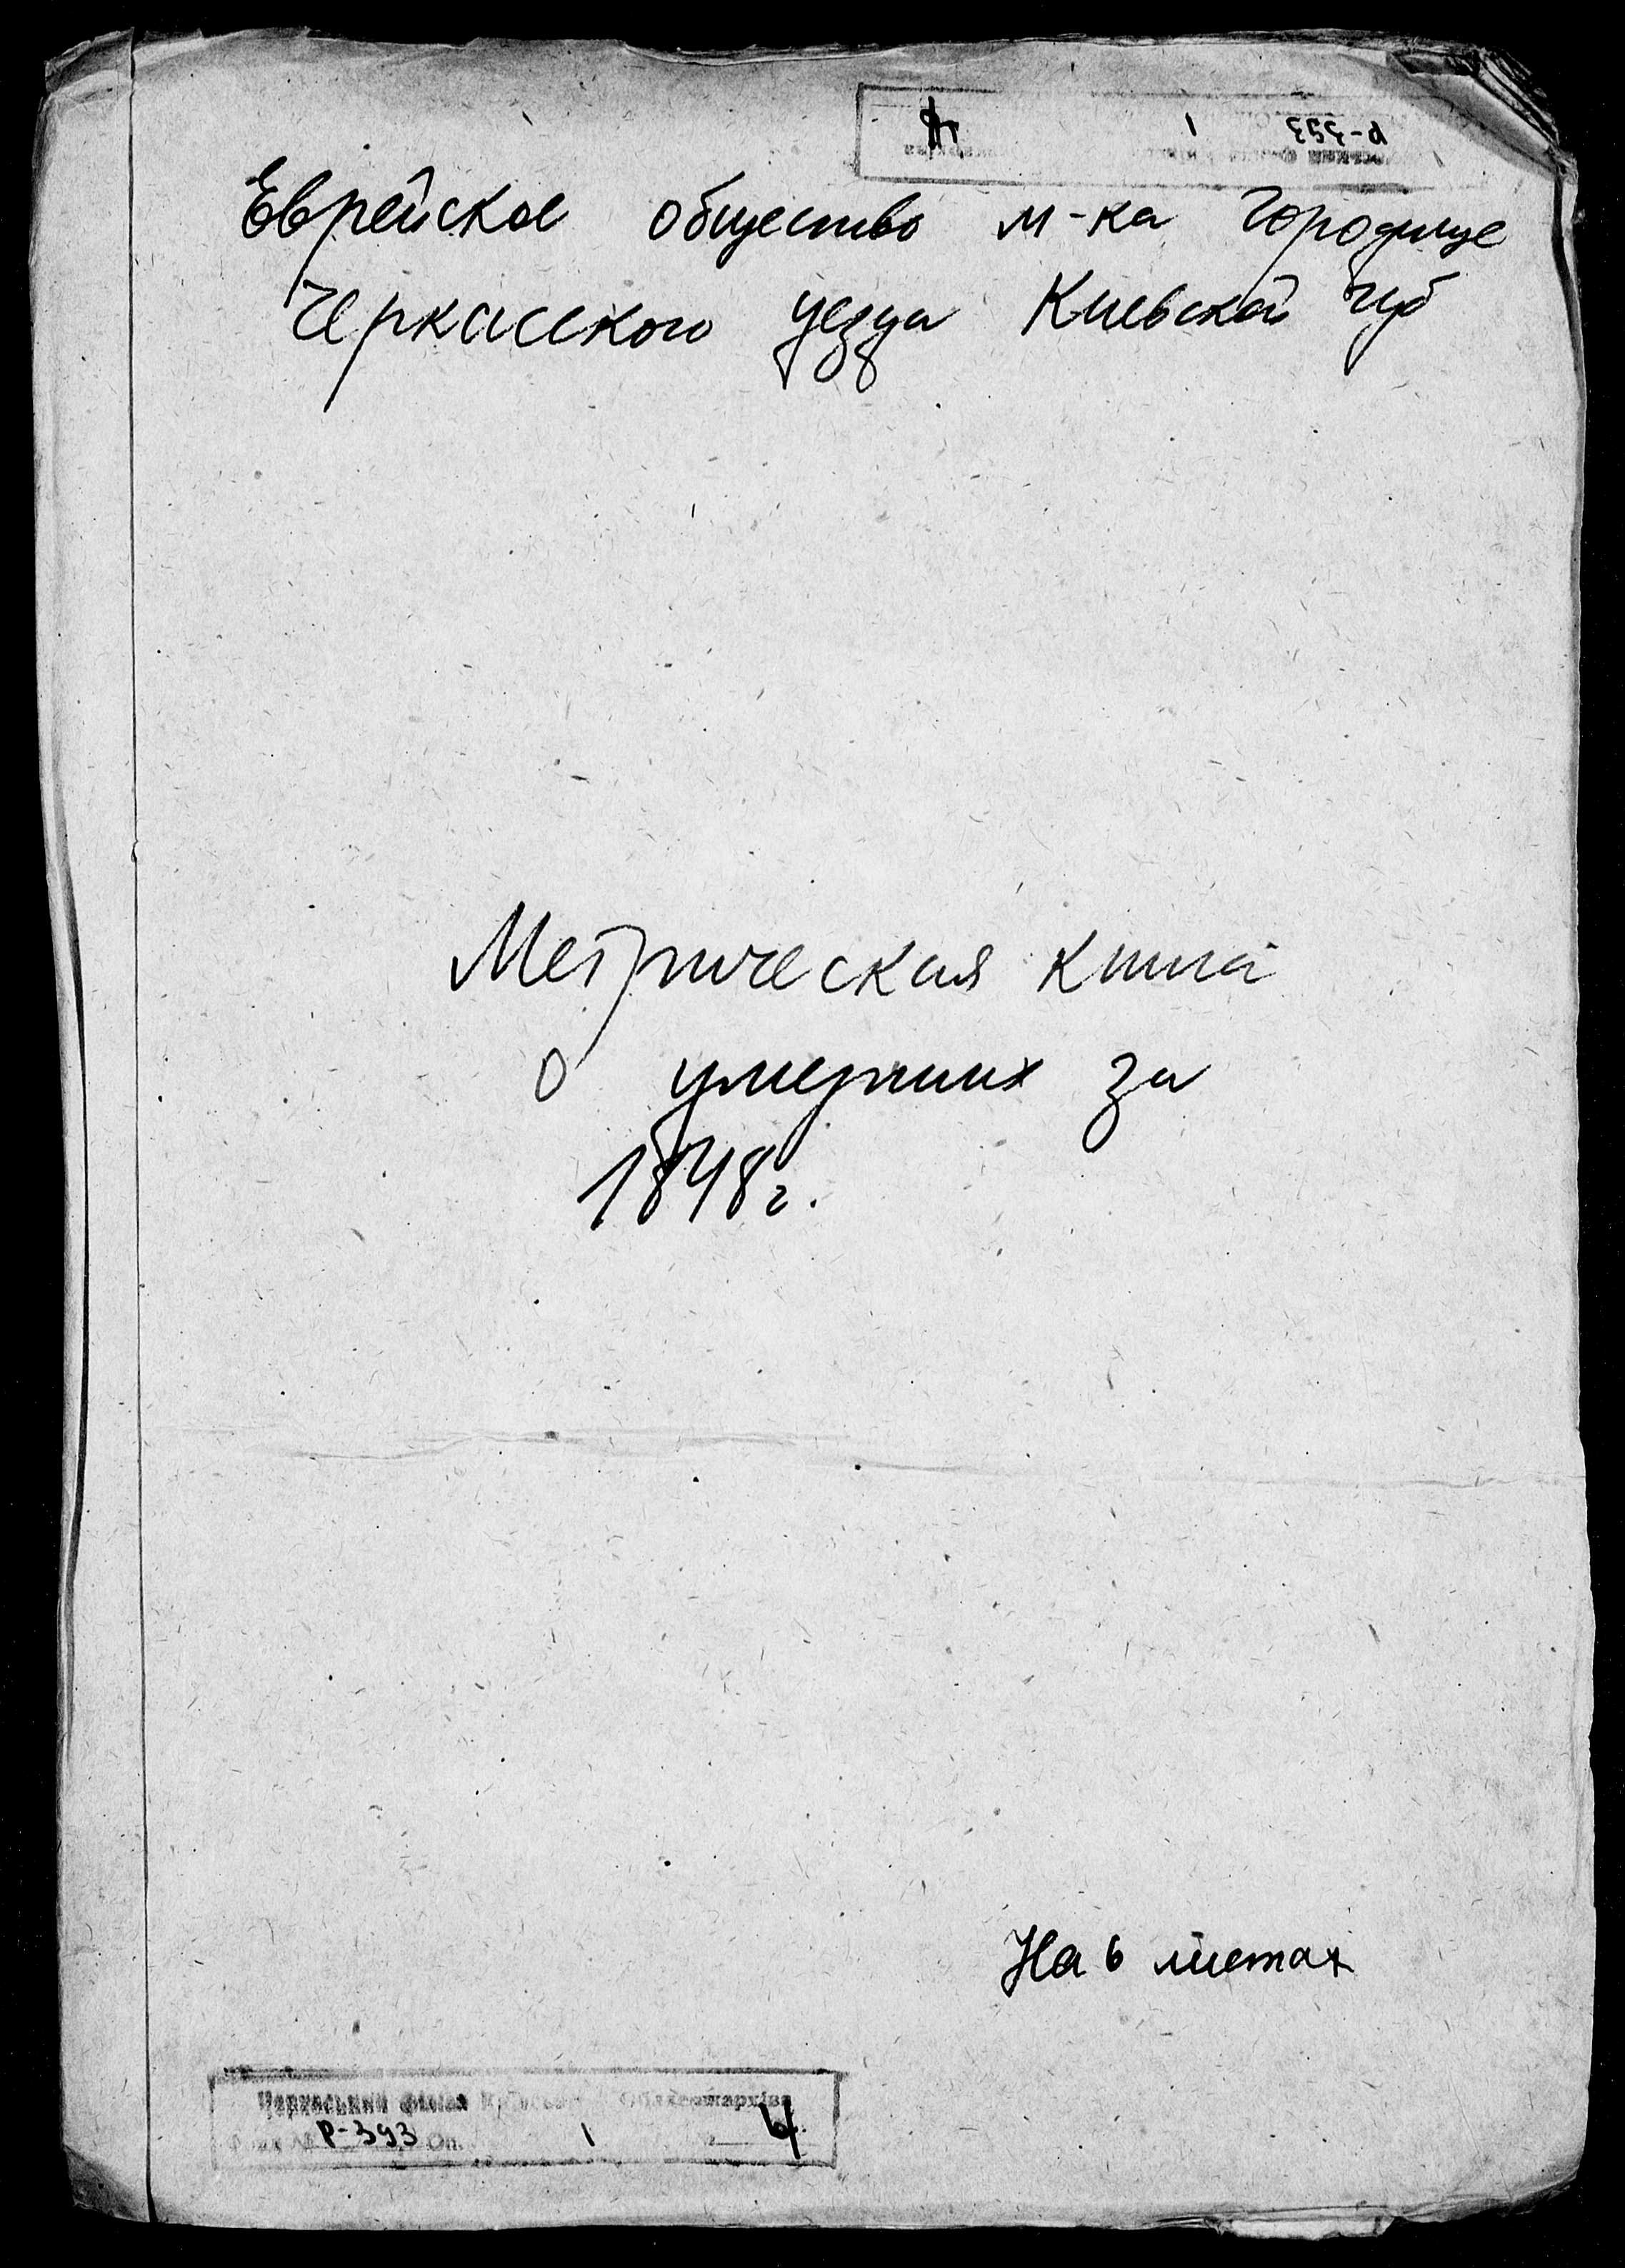 Р-393 1 4
Еврейское общество м-ка Городище
Черкасского уезда Киевской губ
Метрическая книга
о умерших за
1848г.
На 6 листах
Черкаський філіал Київського Облдержархіва
Р-393 Оп. 1 4